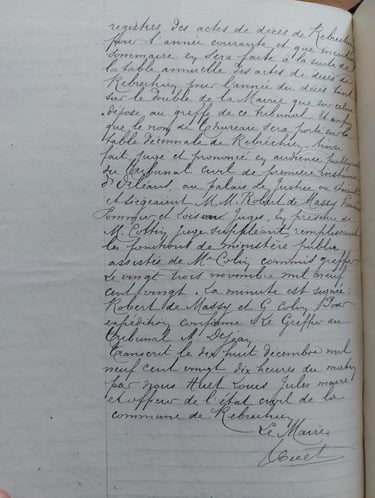 registres des actes de décès de Rebréchien
pour l'année courante et que mention
sommaire en sera faite à la suite de
la table annuelle des actes de décès de
Rebréchien pour l'année du décès tant
sur le double de la Mairie que sur celui
déposé au greffe de ce tribunal Et enfin
que le nom du Thureau sera porté sur la
table décennale de Rebréchien. Ainsi
fait jugé et prononcé en audience publique
du tribunal civil de première instance
d'Orléans, au palais de Justice où étaient
et siégeaient M.M. Robert de Massy
Pommier et Loiseau Juges, en présence de
M. Cottin Juge suppléant remplissant
les fonctions de ministère public
assistés de Me Colin commis greffier
Le vingt trois novembre mil neuf
cent vingt. La minute est signée
Robert de Massy et G Colin Pour
expédition conforme Le Greffier du
tribunal A. Dejean
Transcrit le dix huit décembre mil
neuf cent vingt dix heures du matin
par nous Huet Louis Jules maire
et officier de l'état civil de la
commune de Rebréchien
Le Maire
Huet